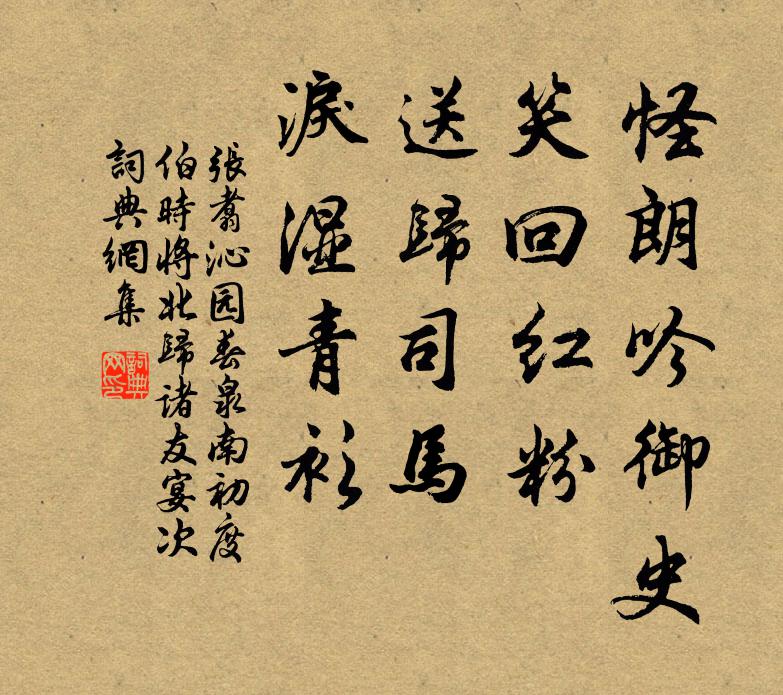 怪朗吟御史
笑回红粉
送歸司馬
淚濕青衫
張翥沁园春泉南初度
伯時將北歸諸友宴次
詞典網集
詞典网印